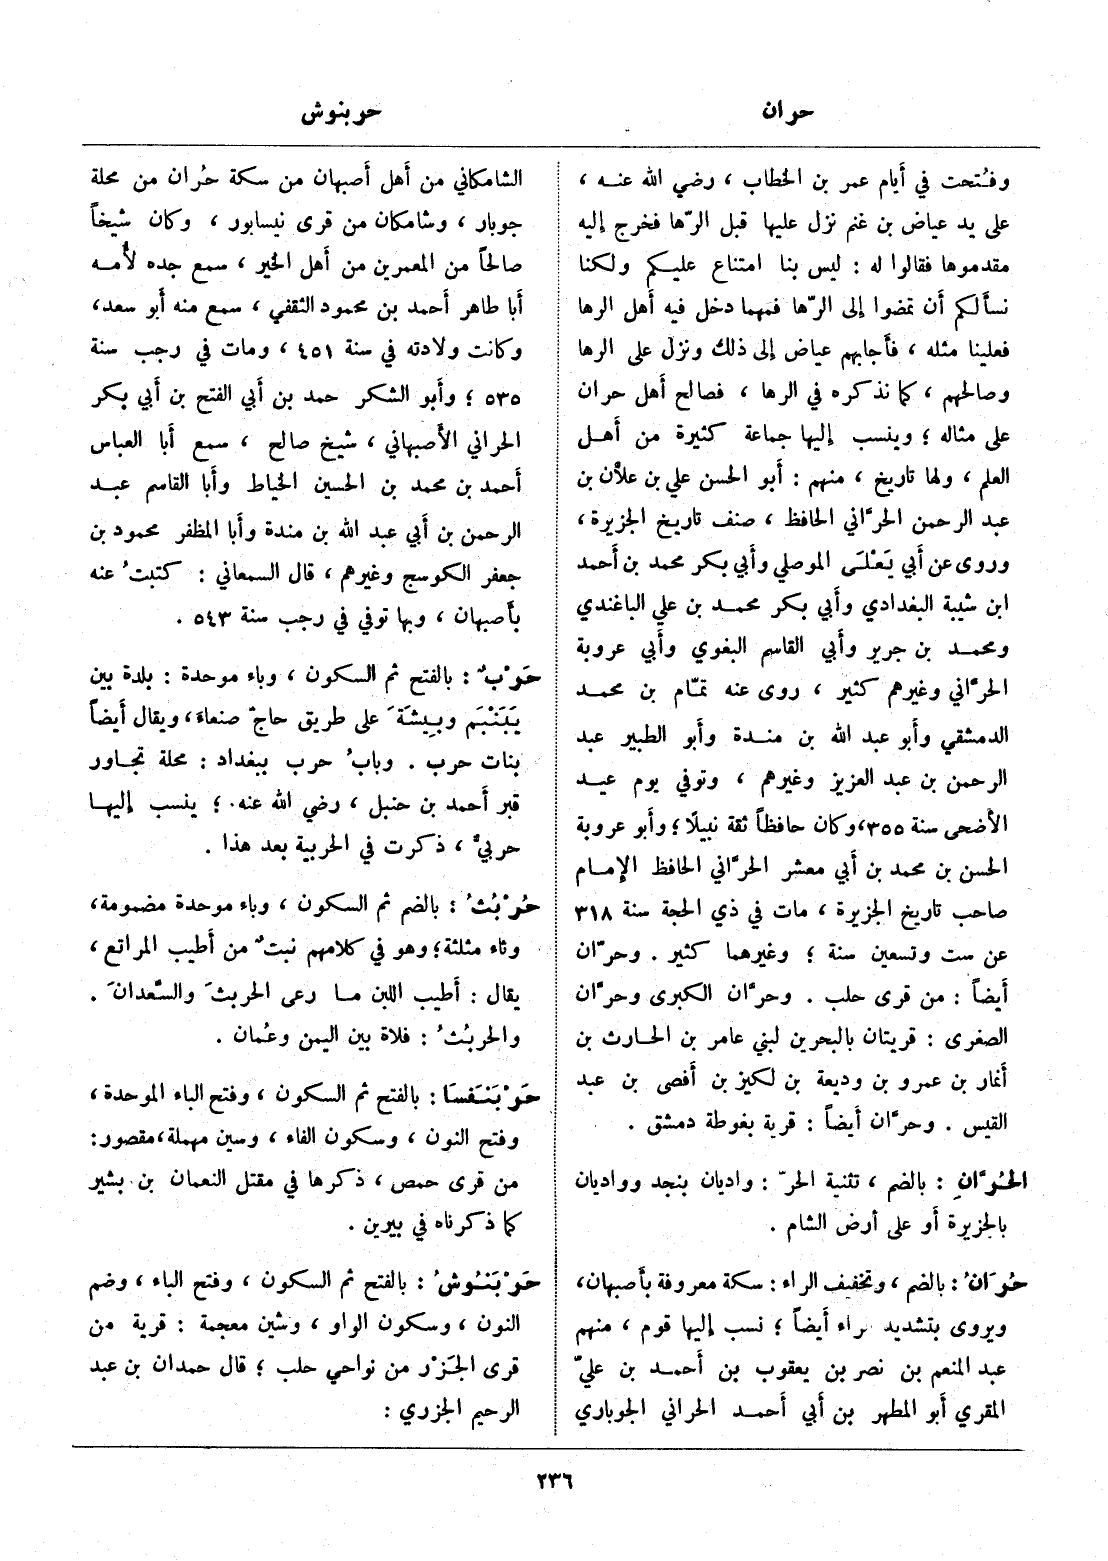 حران
حربنوش
وفُتحت في أيام عمر بن الخطاب ، رضي الله عنه ،
على يد عياض بن غنم نزل عليها قبل الرّها فخرج إليه
مقدموها فقالوا له : ليس بنا امتناع عليكم ولكنا
نسألكم أن تمضوا إلى الرّها فمهما دخل فيه أهل الرها
فعلينا مثله ، فأجابهم عياض إلى ذلك ونزل على الرها
وصالحهم ، كما نذكره في الرها ، فصالح أهل حران
على مثاله ؛ وينسب إليها جماعة كثيرة من أهل
العلم ، ولها تاريخ ، منهم : أبو الحسن علي بن علاّن بن
عبد الرحمن الحرّاني الحافظ ، صنف تاريخ الجزيرة ،
وروى عن أبي يَعْلَى الموصلي وأبي بكر محمد بن أحمد
ابن شيبة البغدادي وأبي بكر محمد بن علي الباغندي
ومحمد بن جرير وأبي القاسم البغوي وأبي عروبة
الحرّاني وغيرهم كثير ، روى عنه تمّام بن محمد
الدمشقي وأبو عبد الله بن مندة وأبو الطبير عبد
الرحمن بن عبد العزيز وغيرهم ، وتوفي يوم عيد
الأضحى سنة ٣٥٥، وكان حافظاً ثقة نبيلاً ؛ وأبو عروبة
الحسن بن محمد بن أبي معشر الحرّاني الحافظ الإمام
صاحب تاريخ الجزيرة ، مات في ذي الحجة سنة ٣١٨
عن ست وتسعين سنة ؛ وغيرهما كثير . وحرّان
أيضاً : من قرى حلب . وحرّان الكبرى وحرّان
الصغرى : قريتان بالبحرين لبني عامر بن الحارث بن
أنمار بن عمرو بن وديعة بن لكيز بن أفصى بن عبد
القيس . وحرّان أيضاً : قرية بغوطة دمشق .
الحُرّانِ : بالضم ، تثنية الحرّ : واديان بنجد وواديان
بالجزيرة أو على أرض الشام .
حُرَانُ : بالضم ، وتخفيف الراء : سكة معروفة بأصبهان،
ويروى بتشديد الراء أيضاً ؛ نسب إليها قوم ، منهم
عبد المنعم بن نصر بن يعقوب بن أحمد بن عليّ
المقري أبو المطهر بن أبي أحمد الحراني الجوباري
الشامكاني من أهل أصبهان من سكة حُران من محلة
جوبار ، وشامكان من قرى نيسابور ، وكان شيخاً
صالحاً من المعمرين من أهل الخير ، سمع جده لأمه
أبا طاهر أحمد بن محمود الثقفي ، سمع منه أبو سعد،
وكانت ولادته في سنة ٤٥١ ، ومات في رجب سنة
٥٣٥ ؛ وأبو الشكر حمد بن أبي الفتح بن أبي بكر
الحراني الأصبهاني ، شيخ صالح ، سمع أبا العباس
أحمد بن محمد بن الحسين الخياط وأبا القاسم عبد
الرحمن بن أبي عبد الله بن مندة وأبا المظفر محمود بن
جعفر الكوسج وغيرهم ، قال السمعاني : كتبتُ عنه
بأصبهان ، وبها توفي في رجب سنة ٥٤٣ .
حَرْبٌ : بالفتح ثم السكون ، وباء موحدة : بلدة بين
يَبَنْبَم وبِيشَةَ على طريق حاجّ صنعاء، ويقال أيضاً
بنات حرب . وبابُ حرب ببغداد : محلة تجاور
قبر أحمد بن حنبل ، رضي الله عنه ؛ ينسب إليها
حربيٌّ ، ذكرت في الحربية بعد هذا .
حُرْبُثُ : بالضم ثم السكون ، وباء موحدة مضمومة،
وثاء مثلثة ؛ وهو في كلامهم نبتٌ من أطيب المراتع ،
يقال : أطيب اللبن ما رعى الحربثَ والسَّعدانَ .
والحربُثُ : فلاة بين اليمن وعُمان .
حَرْبَنَفسَا : بالفتح ثم السكون ، وفتح الباء الموحدة ،
وفتح النون ، وسكون الفاء ، وسين مهملة، مقصور:
من قرى حمص ، ذكرها في مقتل النعمان بن بشير
كما ذكرناه في بيرين .
حَرْبَنُوشُ : بالفتح ثم السكون ، وفتح الباء ، وضم
النون ، وسكون الواو ، وشين معجمة : قرية من
قرى الجَزْر من نواحي حلب ؛ قال حمدان بن عبد
الرحيم الجزري :
٢٣٦